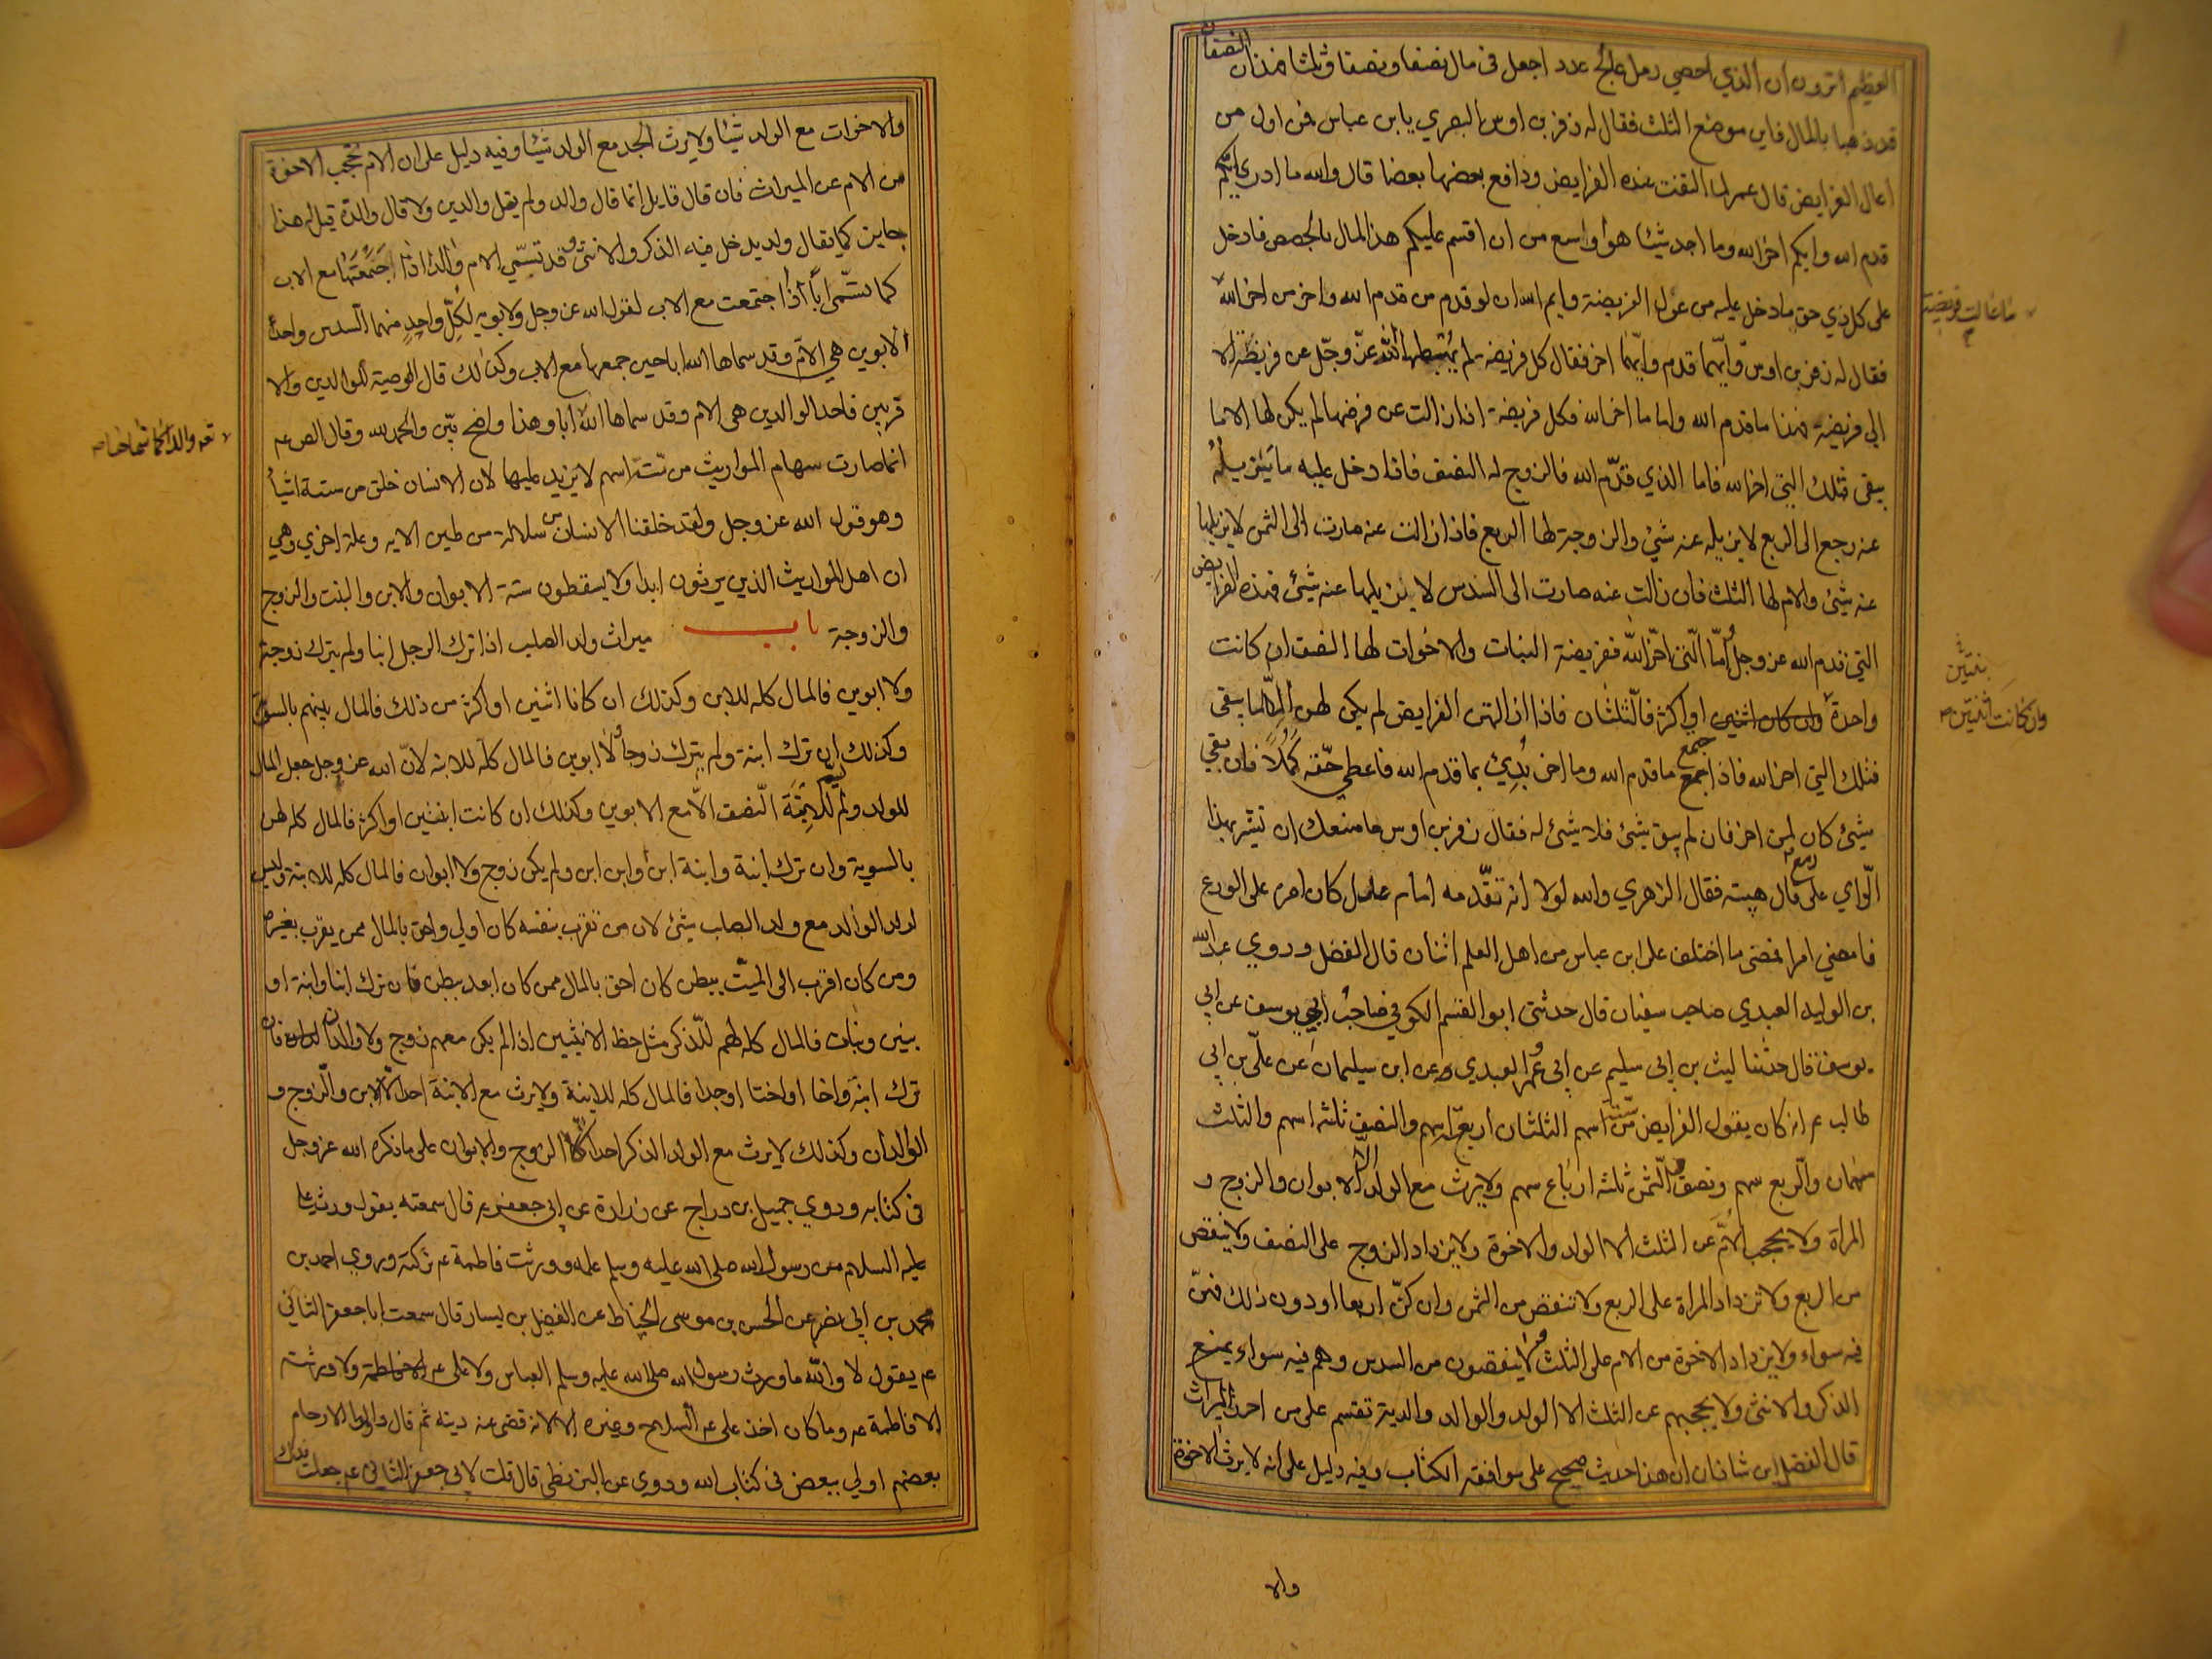 العظيم اترون ان الذي احصي رمل عالج عدد اجعل في مال نصفا ونصفا وثلثا فهذان النصفان
قد ذهبا بالمال فاين موضع الثلث فقال له زفر بن اوس البصري يابن عباس فمن اول من
اعال الفرايض قال عمر لما التقت عنده الفرايض ودافع بعضها بعضا قال والله ما ادري ايكم
قدم الله وايكم اخر الله وما اجد شيئا هو اوسع من ان اقسم عليكم هذا المال بالحصص فادخل
على كل ذي حق مادخل عليه من عول الفريضة وايم الله ان لو قدم من قدم الله واخر من اخر الله
ما عالت فريضة
فقال له زفر بن اوس وايهما قدم وايهما اخر فقال كل فريضة لم يهبطها الله عز وجل عن فريضة الا
الي فريضة فهذا ما قدم الله واما ما اخر الله فكل فريضة اذا زالت عن فرضها لم يكن لها الا ما
يبقى فتلك التي اخر الله فاما الذي قدم الله فالزوج له النصف فاذا دخل عليه ما يزيله
عنه رجع الى الربع لا يزيله عنه شئ والزوجة لها الربع فاذا زالت عنه صارت الى الثمن لا يزيلها
عنه شئ والام لها الثلث فان زالت عنه صارت الى السدس لا يزيلها عنه شئ فهذه الفرايض
التي قدم الله عز وجل واما التي اخر الله ففريضة البنات والاخوات لها النصف ان كانت
واحدة وان كان اثنين او اكثر فالثلثان فاذا ازالتهن الفرايض لم يكن لهن الا ما يبقى
بنتين
وان كانت اثنتين
فتلك التي اخر الله فاذا اجمع جمع ما قدم الله وما اخر بدئ بما قدم الله فاعطي حقه كملا فان بقي
شئ كان لمن اخر فان لم يبق شئ فلا شئ له فقال زفر بن اوس ما منعك ان تشير بهذا
الراي على قال هيبته فقال الزهري والله لولا انه تقدمه امام عدل كان امره على الورع
فامضي امرا فمضى ما اختلف على ابن عباس من اهل العلم اثنان قال الفضل وروي عبد الله
بن الوليد العبدي صاحب سفيان قال حدثني ابو القسم الكوفي صاحب ابي يوسف عن ابي
يوسف قال حدثنا ليث بن ابي سليم عن ابي عمر العبدي عن ابن سليمان عن علي بن ابي
طالب عم انه كان يقول الفرايض من ستة اسهم الثلثان اربع اسهم والنصف ثلثه اسهم والثلث
سهمان والربع سهم ونصف والثمن ثلثه ارباع سهم ولا يرث مع الولد الا الابوان والزوج و
المراة ولا يحجب الام عن الثلث الا الولد والاخوة ولا يزداد الزوج على النصف ولا ينقص
من الربع ولا تزداد المراة على الربع ولا تنقص من الثمن وان كن اربعا او دون ذلك فهن
فيه سواء ولا يزداد الاخوة من الام على الثلث ولا ينقصون من السدس وهم فيه سواء يمنع
الذكر والانثى ولا يحجبهم عن الثلث الا الولد والوالد والدية تقسم على من احرز الميراث
قال الفضل ابن شاذان ان هذا حديث صحيح على موافقه الكتاب وفيه دليل على انه لا يرث الاخوة
والا
والاخوات مع الولد شيئا ولا يرث الجد مع الولد شيئا وفيه دليل على ان الام تحجب الاخوة
من الام عن الميراث فان قال قايل انما قال والد ولم يقل والدين ولا قال والدة قيل له هذا
جايز كما يقال ولد يدخل فيه الذكر والانثى وقد تسمي الام والدا اذا جمعتها مع الاب
كما تسمى ابا اذا اجتمعت مع الاب لقول الله عز وجل ولابويه لكل واحد منهما السدس واحد
الابوين هي الام وقد سماها الله ابا حين جمعها مع الاب وكذلك قال الوصية للوالدين والا
قربين فاحد الوالدين هي الام وقد سماها الله ابا وهذا واضح بين والحمد لله وقال الص عم
انما صارت سهام المواريث من ستة اسهم لا يزيد عليها لان الانسان خلق من ستة اشياء
وهو قول الله عز وجل ولقد خلقنا الانسان من سلالة من طين الايه وعلة اخري وهي
ان اهل المواريث الذين يرثون ابدا ولا يسقطون ستة الابوان والابن والبنت والزوج
والزوجة باب ميراث ولد الصلب اذا ترك الرجل ابنا ولم يترك زوجة
ولا ابوين فالمال كله للابن وكذلك ان كانا اثنين او اكثر من ذلك فالمال بينهم بالسوية
وكذلك ان ترك ابنة ولم يترك زوجا ولا ابوين فالمال كله للابنة لان الله عز وجل جعل المال
للولد ولم يسم للابنة النصف الا مع الابوين وكذلك ان كانت ابنتين او اكثر فالمال كله لهن
بالسوية وان ترك ابنة وابنة ابن وابن ابن ولم يكن زوج ولا ابوان فالمال كله للابنة وليس
لولد الولد مع ولد الصلب شئ لان من تقرب بنفسه كان اولي واحق بالمال ممن يقرب بغيره
ومن كان اقرب الى الميت ببطن كان احق بالمال ممن كان ابعد ببطن فان ترك ابنا وابنة او
بنين وبنات فالمال كله لهم للذكر مثل حظ الانثيين اذا لم يكن معهم زوج ولا والدان فان
ترك ابنة واخا او اختا او جدا فالمال كله للابنة ولا يرث مع الابنة احد الا الابن والزوج و
الوالدان وكذلك لا يرث مع الولد الذكر احد الا الزوج والابوان على ما ذكره الله عز وجل
في كتابه وروي جميل بن دراج عن زرارة عن ابي جعفر عم قال سمعته يقول ورث علي
عليه السلام من رسول الله صلى الله عليه وسلم علمه وورثت فاطمة عم تركته وروي احمد بن
محمد بن ابي نصر عن الحسن بن موسى الحناط عن الفضيل بن يسار قال سمعت ابا جعفر الثاني
عم يقول لا والله ما ورث رسول الله صلى الله عليه وسلم العباس ولا علي عم ولا ورثته
الا فاطمة عم وما كان اخذ علي عم السلاح وغيره الا لانه قضى عنه دينه ثم قال واولوا الارحام
بعضهم اولي ببعض في كتاب الله وروي عن البزنطي قال قلت لابي جعفر الثاني عم جعلت فداك